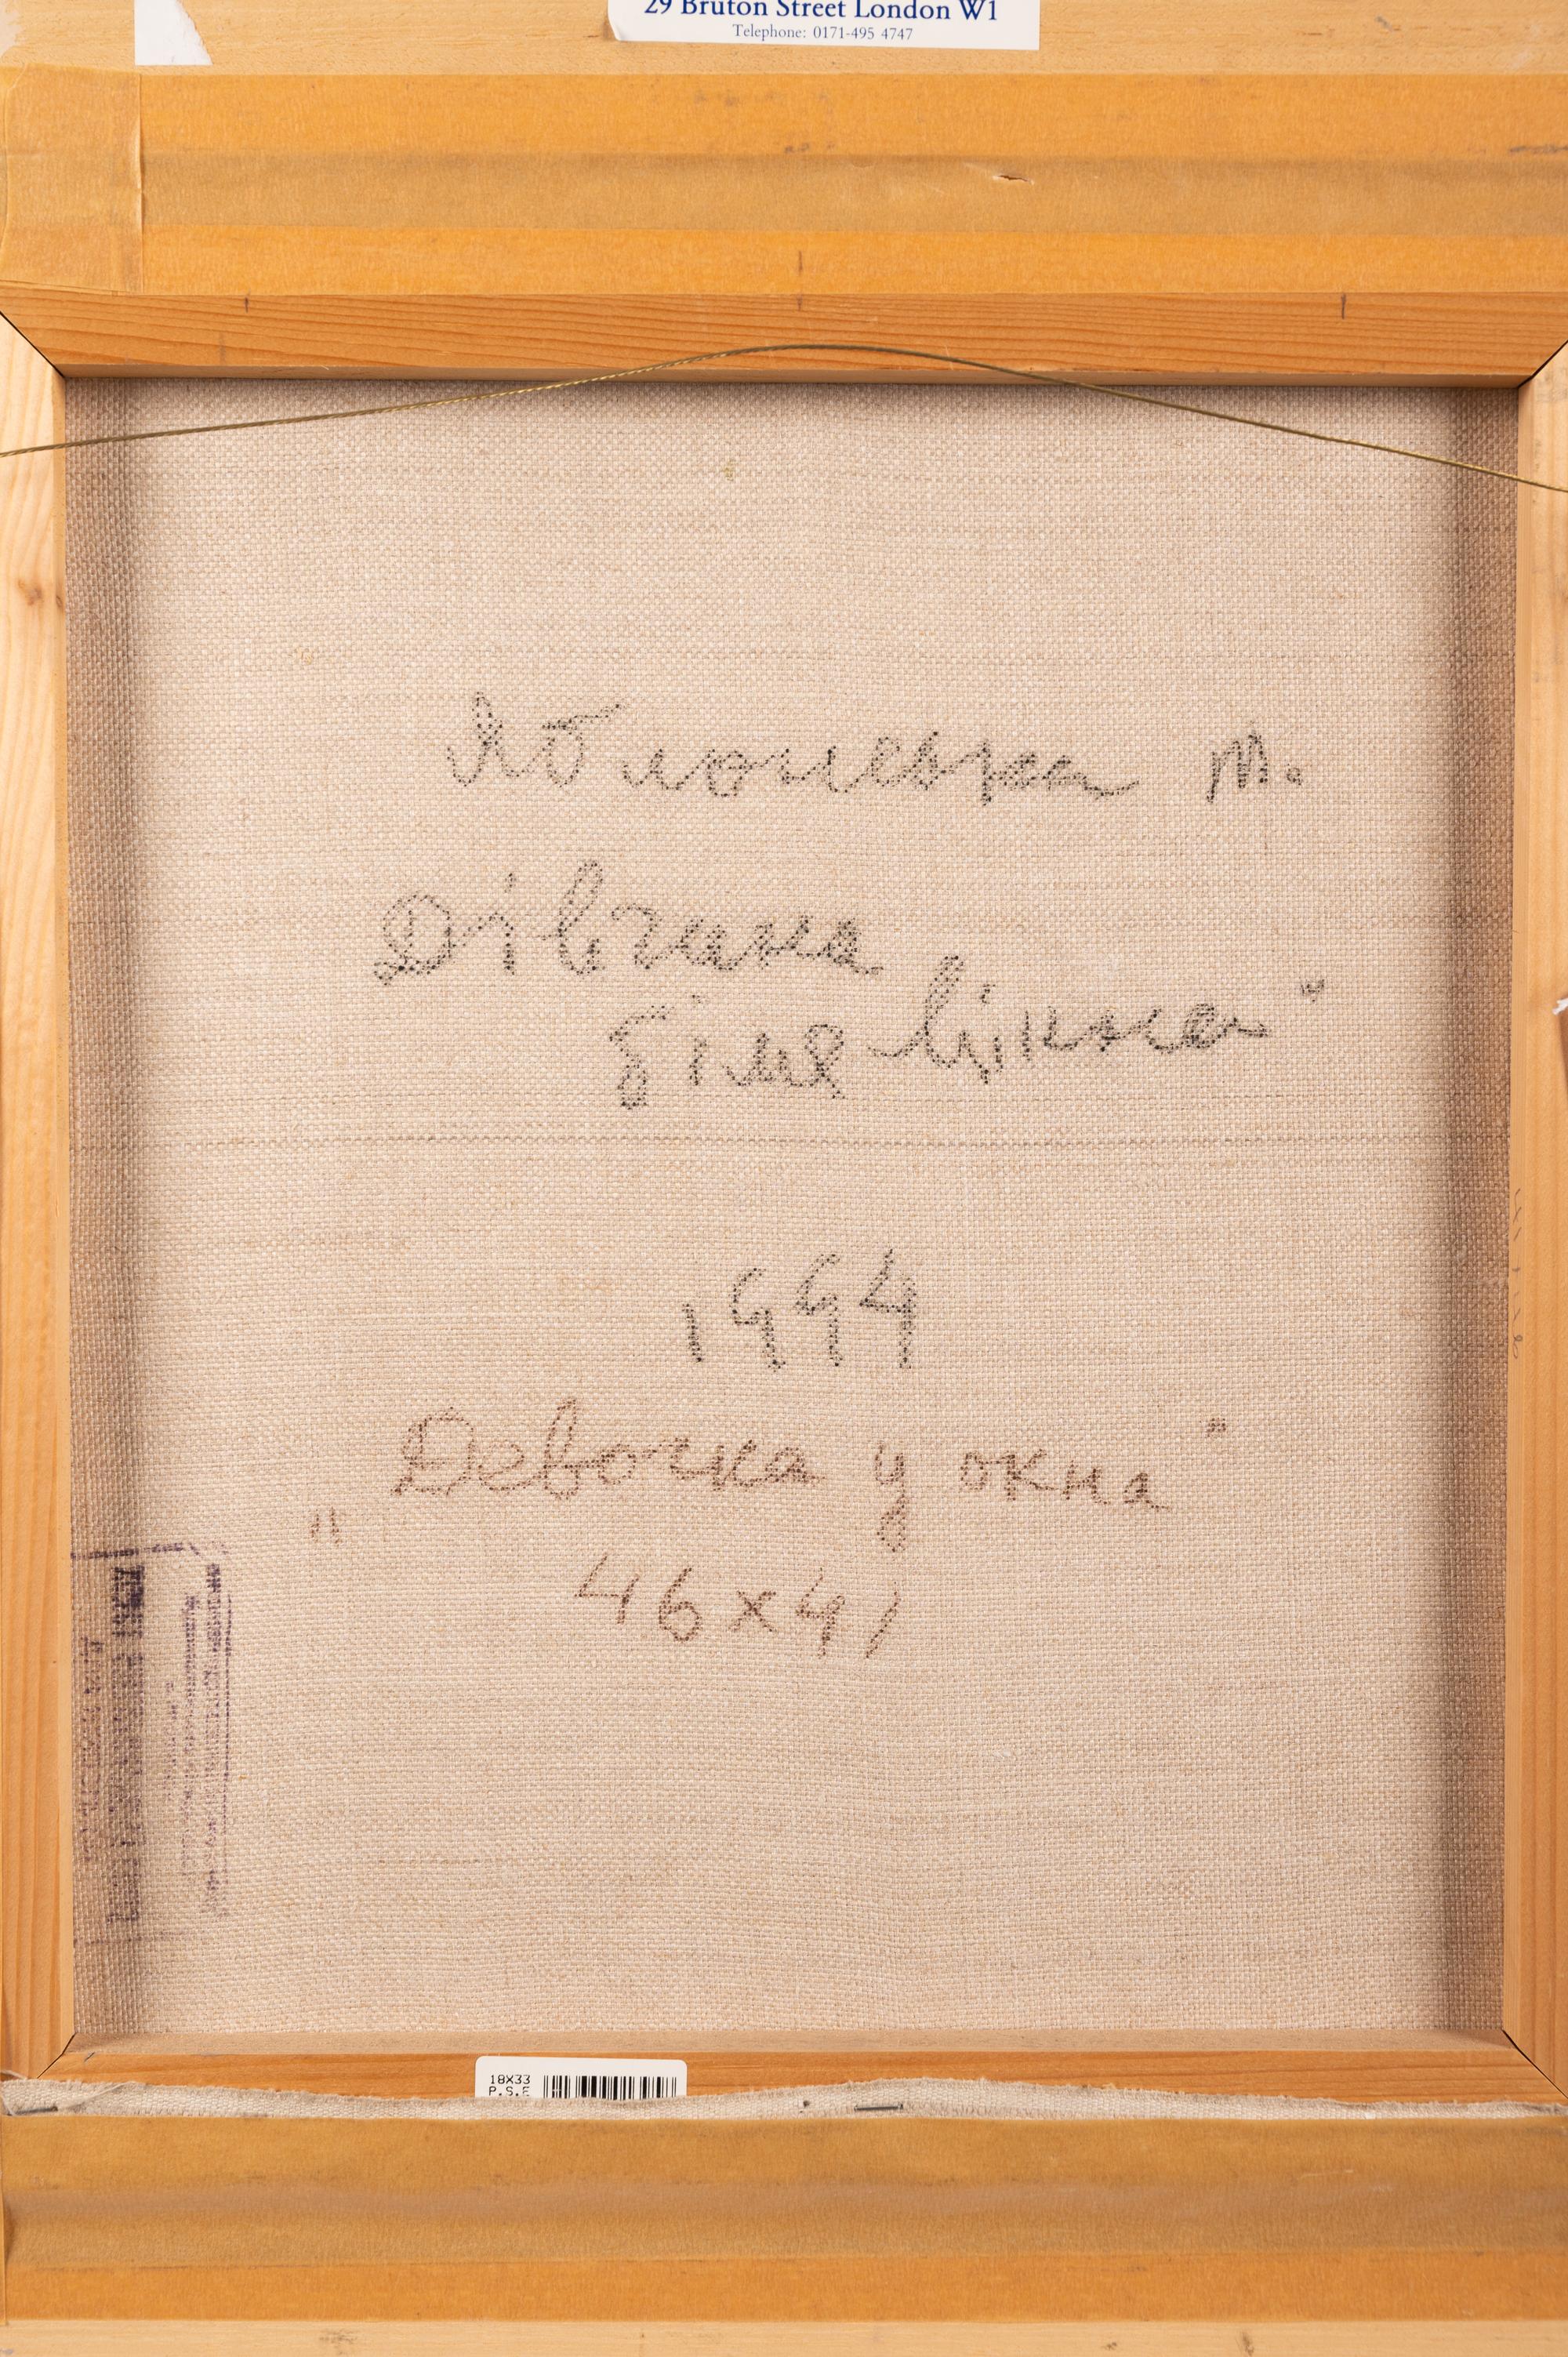 29 Bruton Street London W1
Telephone: 0171-495 4747
Яблонська Т.
Дівчина
біля вікна"
1994
„Девочка у окна"
46x41
18X33
P.S.E